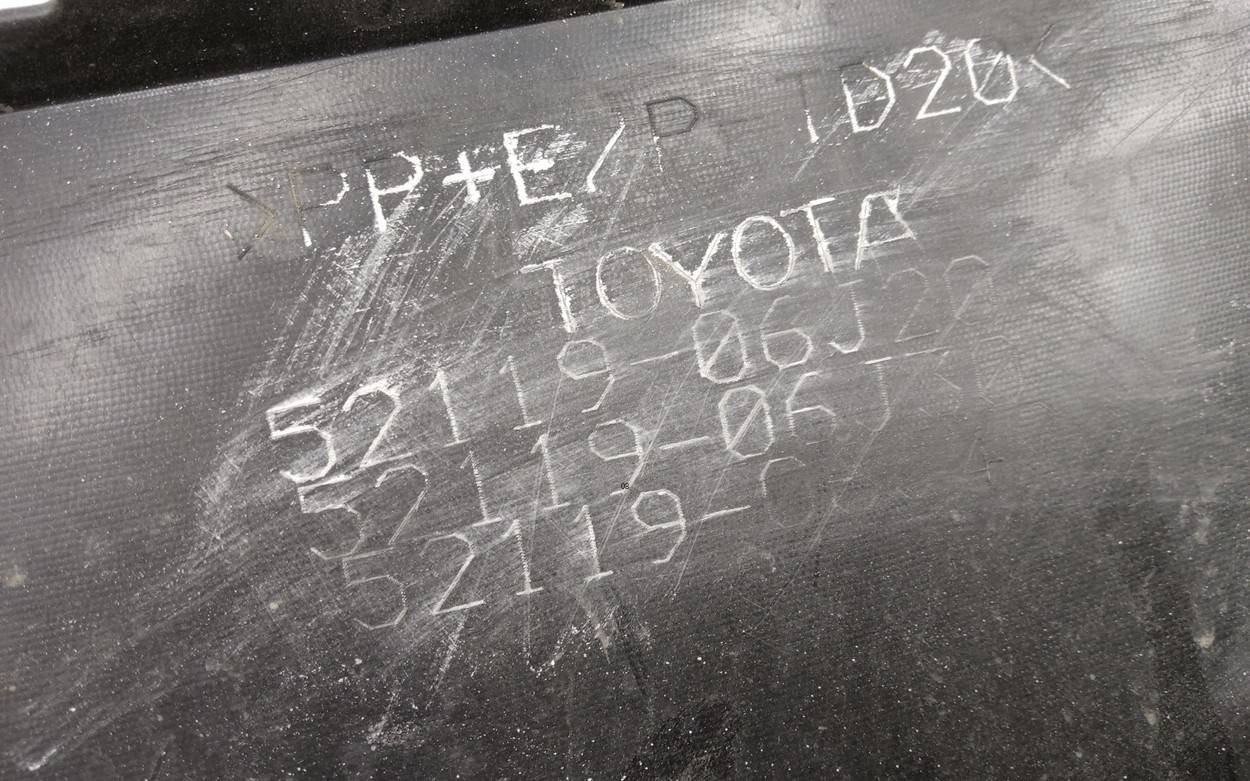 >PP+E/P TD20<
TOYOTA
52119-06J20
52119-06J
52119-0